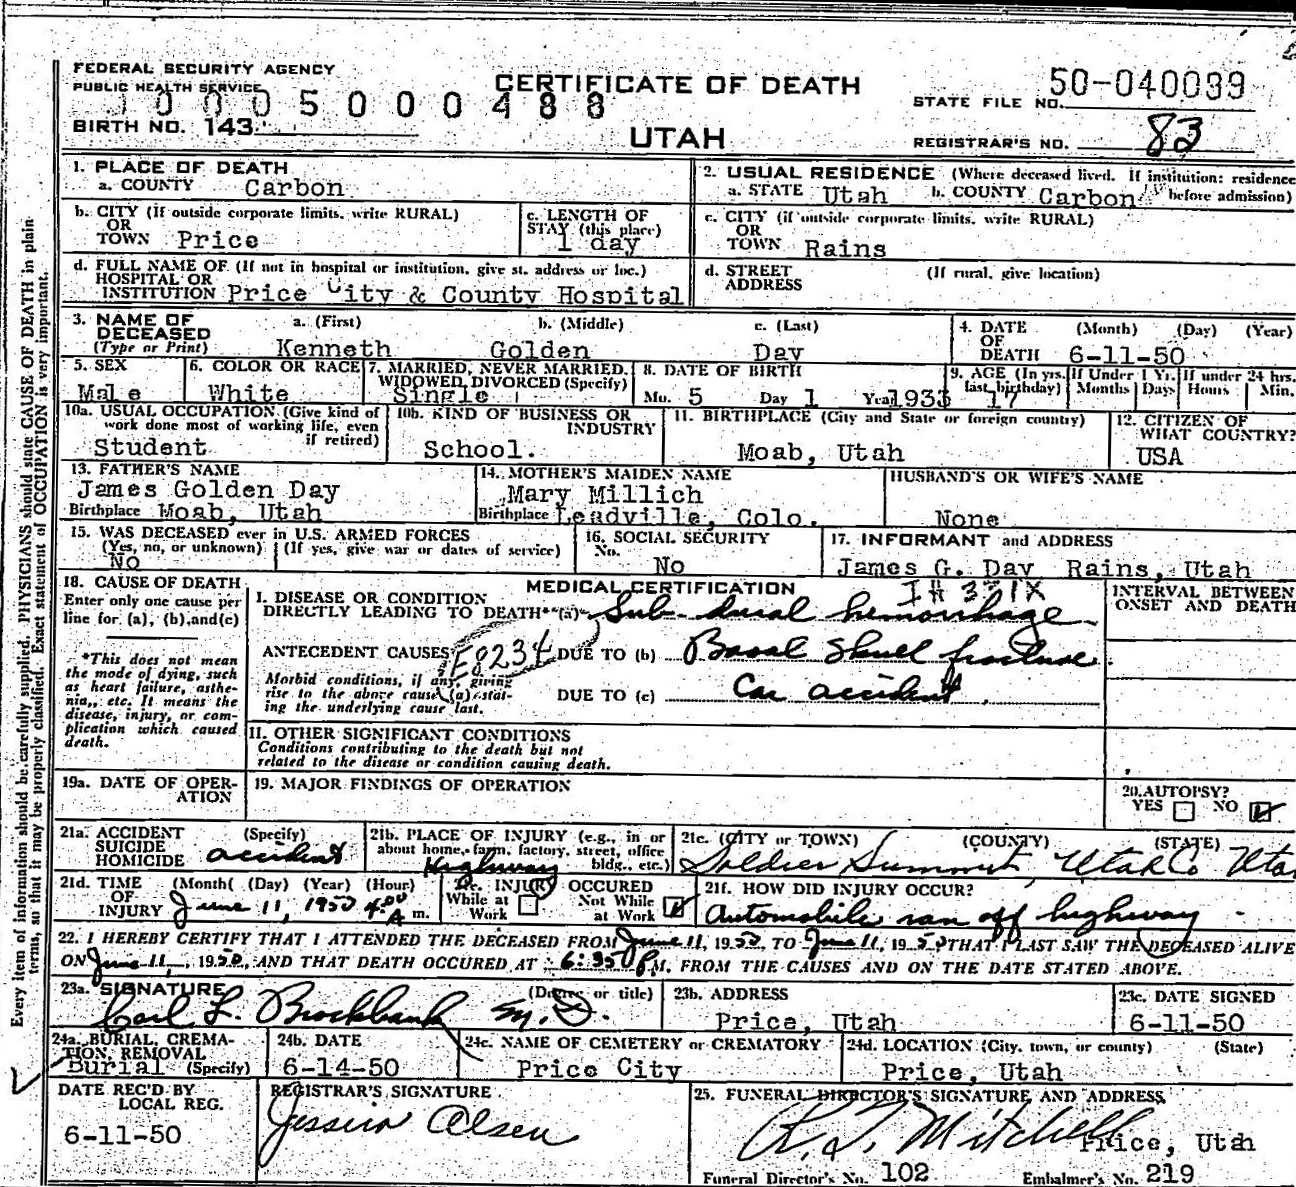 FEDERAL SECURITY AGENCY
PUBLIC HEALTH SERVICE
CERTIFICATE OF DEATH
50-040039
STATE FILE NO.
0005000488
BIRTH NO. 143
UTAH
REGISTRAR'S NO. 83
1. PLACE OF DEATH
a. COUNTY Carbon
2. USUAL RESIDENCE (Where deceased lived. If institution: residence
a. STATE Utah b. COUNTY Carbon before admission)
b. CITY (If outside corporate limits, write RURAL)
OR
TOWN Price
c. LENGTH OF
STAY (this place)
1 day
c. CITY (if outside corporate limits, write RURAL)
OR
TOWN Rains
d. FULL NAME OF (If not in hospital or institution, give st. address or loc.)
HOSPITAL OR
INSTITUTION Price City & County Hospital
d. STREET (If rural, give location)
ADDRESS
3. NAME OF DECEASED
(Type or Print)
a. (First) b. (Middle) c. (Last)
Kenneth Golden Day
4. DATE OF DEATH
(Month) (Day) (Year)
6-11-50
5. SEX
Male
6. COLOR OR RACE
White
7. MARRIED, NEVER MARRIED,
WIDOWED, DIVORCED (Specify)
Single
8. DATE OF BIRTH
Mo. 5 Day 1 Year 1933
9. AGE (In yrs. last birthday)
17
If Under 1 Yr.
Months Days
If under 24 hrs.
Hours Min.
10a. USUAL OCCUPATION (Give kind of
work done most of working life, even
if retired)
Student
10b. KIND OF BUSINESS OR
INDUSTRY
School.
11. BIRTHPLACE (City and State or foreign country)
Moab, Utah
12. CITIZEN OF
WHAT COUNTRY?
USA
13. FATHER'S NAME
James Golden Day
Birthplace Moab, Utah
14. MOTHER'S MAIDEN NAME
Mary Millich
Birthplace Leadville, Colo.
HUSBAND'S OR WIFE'S NAME
None
15. WAS DECEASED ever in U.S. ARMED FORCES
(Yes, no, or unknown) (If yes, give war or dates of service)
No
16. SOCIAL SECURITY
No.
No
17. INFORMANT and ADDRESS
James G. Day Rains, Utah
18. CAUSE OF DEATH
Enter only one cause per
line for (a), (b), and (c)
*This does not mean
the mode of dying, such
as heart failure, asthe-
nia,, etc. It means the
disease, injury, or com-
plication which caused
death.
MEDICAL CERTIFICATION
I. DISEASE OR CONDITION
DIRECTLY LEADING TO DEATH* (a) Sub-dural hemorrhage
ANTECEDENT CAUSES E8234 DUE TO (b) Basal Skull fracture
Morbid conditions, if any, giving
rise to the above cause (a) stat-
ing the underlying cause last.
DUE TO (c) Car accident
INTERVAL BETWEEN
ONSET AND DEATH
II. OTHER SIGNIFICANT CONDITIONS
Conditions contributing to the death but not
related to the disease or condition causing death.
19a. DATE OF OPER-
ATION
19. MAJOR FINDINGS OF OPERATION
20. AUTOPSY?
YES NO
21a. ACCIDENT (Specify)
SUICIDE
HOMICIDE accident
21b. PLACE OF INJURY (e.g., in or
about home, farm, factory, street, office
bldg., etc.)
Highway
21c. (CITY or TOWN) (COUNTY) (STATE)
Soldier Summit, Utah Co Utah
21d. TIME (Month) (Day) (Year) (Hour)
OF
INJURY June 11, 1950 4:00 A m.
21e. INJURY OCCURED
While at Work
Not While at Work
21f. HOW DID INJURY OCCUR?
Automobile ran off highway
22. I HEREBY CERTIFY THAT I ATTENDED THE DECEASED FROM June 11, 1950, TO June 11, 1950 THAT I LAST SAW THE DECEASED ALIVE
ON June 11, 1950, AND THAT DEATH OCCURED AT 6:35 P M. FROM THE CAUSES AND ON THE DATE STATED ABOVE.
23a. SIGNATURE (Degree or title)
Carl L. Brockbank M.D.
23b. ADDRESS
Price, Utah
23c. DATE SIGNED
6-11-50
24a. BURIAL, CREMA-
TION, REMOVAL
Burial (Specify)
24b. DATE
6-14-50
24c. NAME OF CEMETERY or CREMATORY
Price City
24d. LOCATION (City, town, or county) (State)
Price, Utah
DATE REC'D BY
LOCAL REG.
6-11-50
REGISTRAR'S SIGNATURE
Olsen
25. FUNERAL DIRECTOR'S SIGNATURE AND ADDRESS
Mitchell Price, Utah
Funeral Director's No. 102 Embalmer's No. 219
Every item of information should be carefully supplied. PHYSICIANS should state CAUSE OF DEATH in plain
terms, so that it may be properly classified. Exact statement of OCCUPATION is very important.